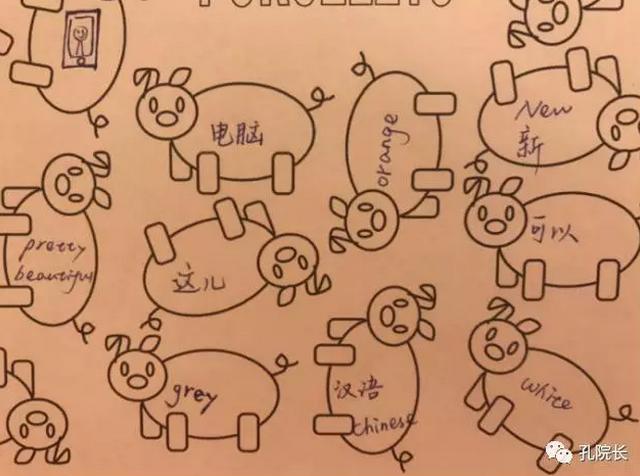 电脑
orange
New
新
pretty
beautiful
这儿
可以
grey
汉语
Chinese
white
孔院长